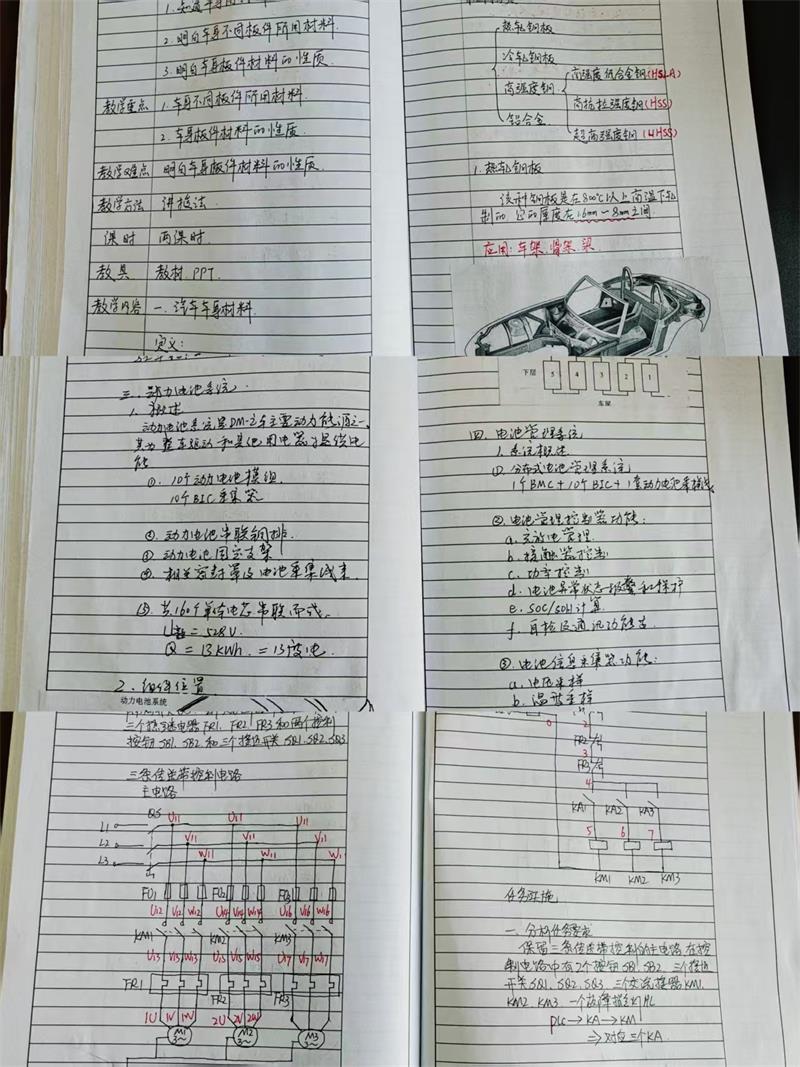 2.明白车身不同板件所用材料.
3.明白车身板件材料的性质.
教学重点 1.车身不同板件所用材料.
2.车身板件材料的性质.
教学难点 明白车身板件材料的性质.
教学方法 讲授法.
课时 两课时.
教具 教材.PPT.
教学内容 一.汽车车身材料.
定义:
热轧钢板
冷轧钢板
高强度钢
高强度低合金钢(HSLA)
高抗拉强度钢(HSS)
超高强度钢(UHSS)
铝合金.
1.热轧钢板
该种钢板是在800℃以上高温下轧
制的,它的厚度在1.6mm~8mm之间
应用:车架.骨架.梁
三.动力电池系统.
1.概述
动力电池系统是DM-2车主要动力能源之一,
其为整车驱动和其他用电器提供电
能
①.10个动力电池模组.
10个BIC采集器
②.动力电池串联铜排.
③.动力电池固定支架
④.相关密封罩及电池采集线束.
⑤.共160个单体电芯串联而成.
U总=528V.
Q=13KWh.=13度电.
2.组件位置
动力电池系统
下层
5 4 3 2 1
车尾
四.电池管理系统
1.系统概述.
①.分布式电池管理系统
1个BMC+10个BIC+1套动力电池采样线
②.电池管理控制器功能:
a.充放电管理.
b.接触器控制
c.功率控制
d.电池异常状态报警和保护
e.SOC/SOH计算.
f.自检及通讯功能等.
③.电池信息采集器功能:
a.电压采样
b.温度采样
三个热继电器FR1.FR2.FR3和两个控制
按钮SB1.SB2和三个接近开关SQ1.SQ2.SQ3
三条传送带控制电路
主电路
QS U11 U11 U11
L1
L2 V11 V11 V11
L3 W11 W11 W11
FU1 FU2 FU3
U12 V12 W12 U14 V14 W14 U16 V16 W16
KM1 KM2 KM3
U13 V13 W13 U15 V15 W15 U17 V17 W17
FR1 FR2 FR3
1U 1V 1W 2U 2V 2W
M1 3~ M2 3~ M3 3~
0 2
FR2
3
FR3
4
KA1 KA2 KA3
5 6 7
KM1 KM2 KM3
任务实施
一.分析任务要求
保留三条传送带控制的主电路,在控
制电路中有2个按钮SB1.SB2.三个接近
开关SQ1.SQ2.SQ3.三个交流接触器KM1.
KM2.KM3.一个故障指示灯HL
PLC→KA→KM
⇒对应三个KA.